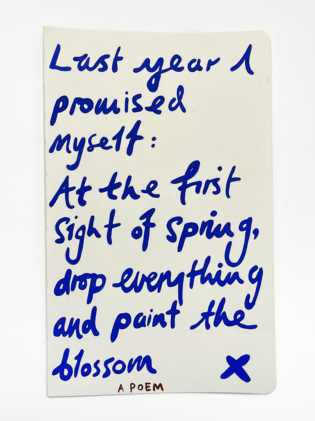 Last year I
promised
myself:
At the first
sight of spring,
drop everything
and paint the
blossom x
A POEM